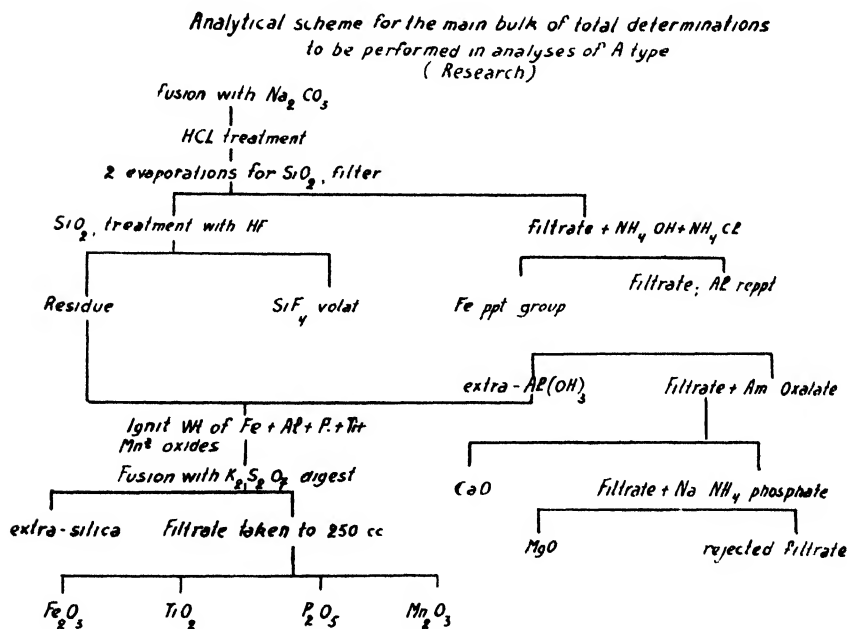 Analytical scheme for the main bulk of total determinations
to be performed in analyses of A type
( Research)
Fusion with Na₂ CO₃
HCL treatment
2 evaporations for SiO₂, filter
SiO₂, treatment with HF
filtrate + NH₄ OH + NH₄ Cl
Residue
SiF₄ volat
Fe ppt group
Filtrate; Al reppt
extra - Al(OH)₃
Filtrate + Am Oxalate
Ignit Wt of Fe + Al + P. + Ti+
Mn² oxides
CaO
Filtrate + Na NH₄ phosphate
Fusion with K₂S₂O₇ digest
extra-silica
Filtrate taken to 250 cc
MgO
rejected filtrate
Fe₂O₃
TiO₂
P₂O₅
Mn₂O₃